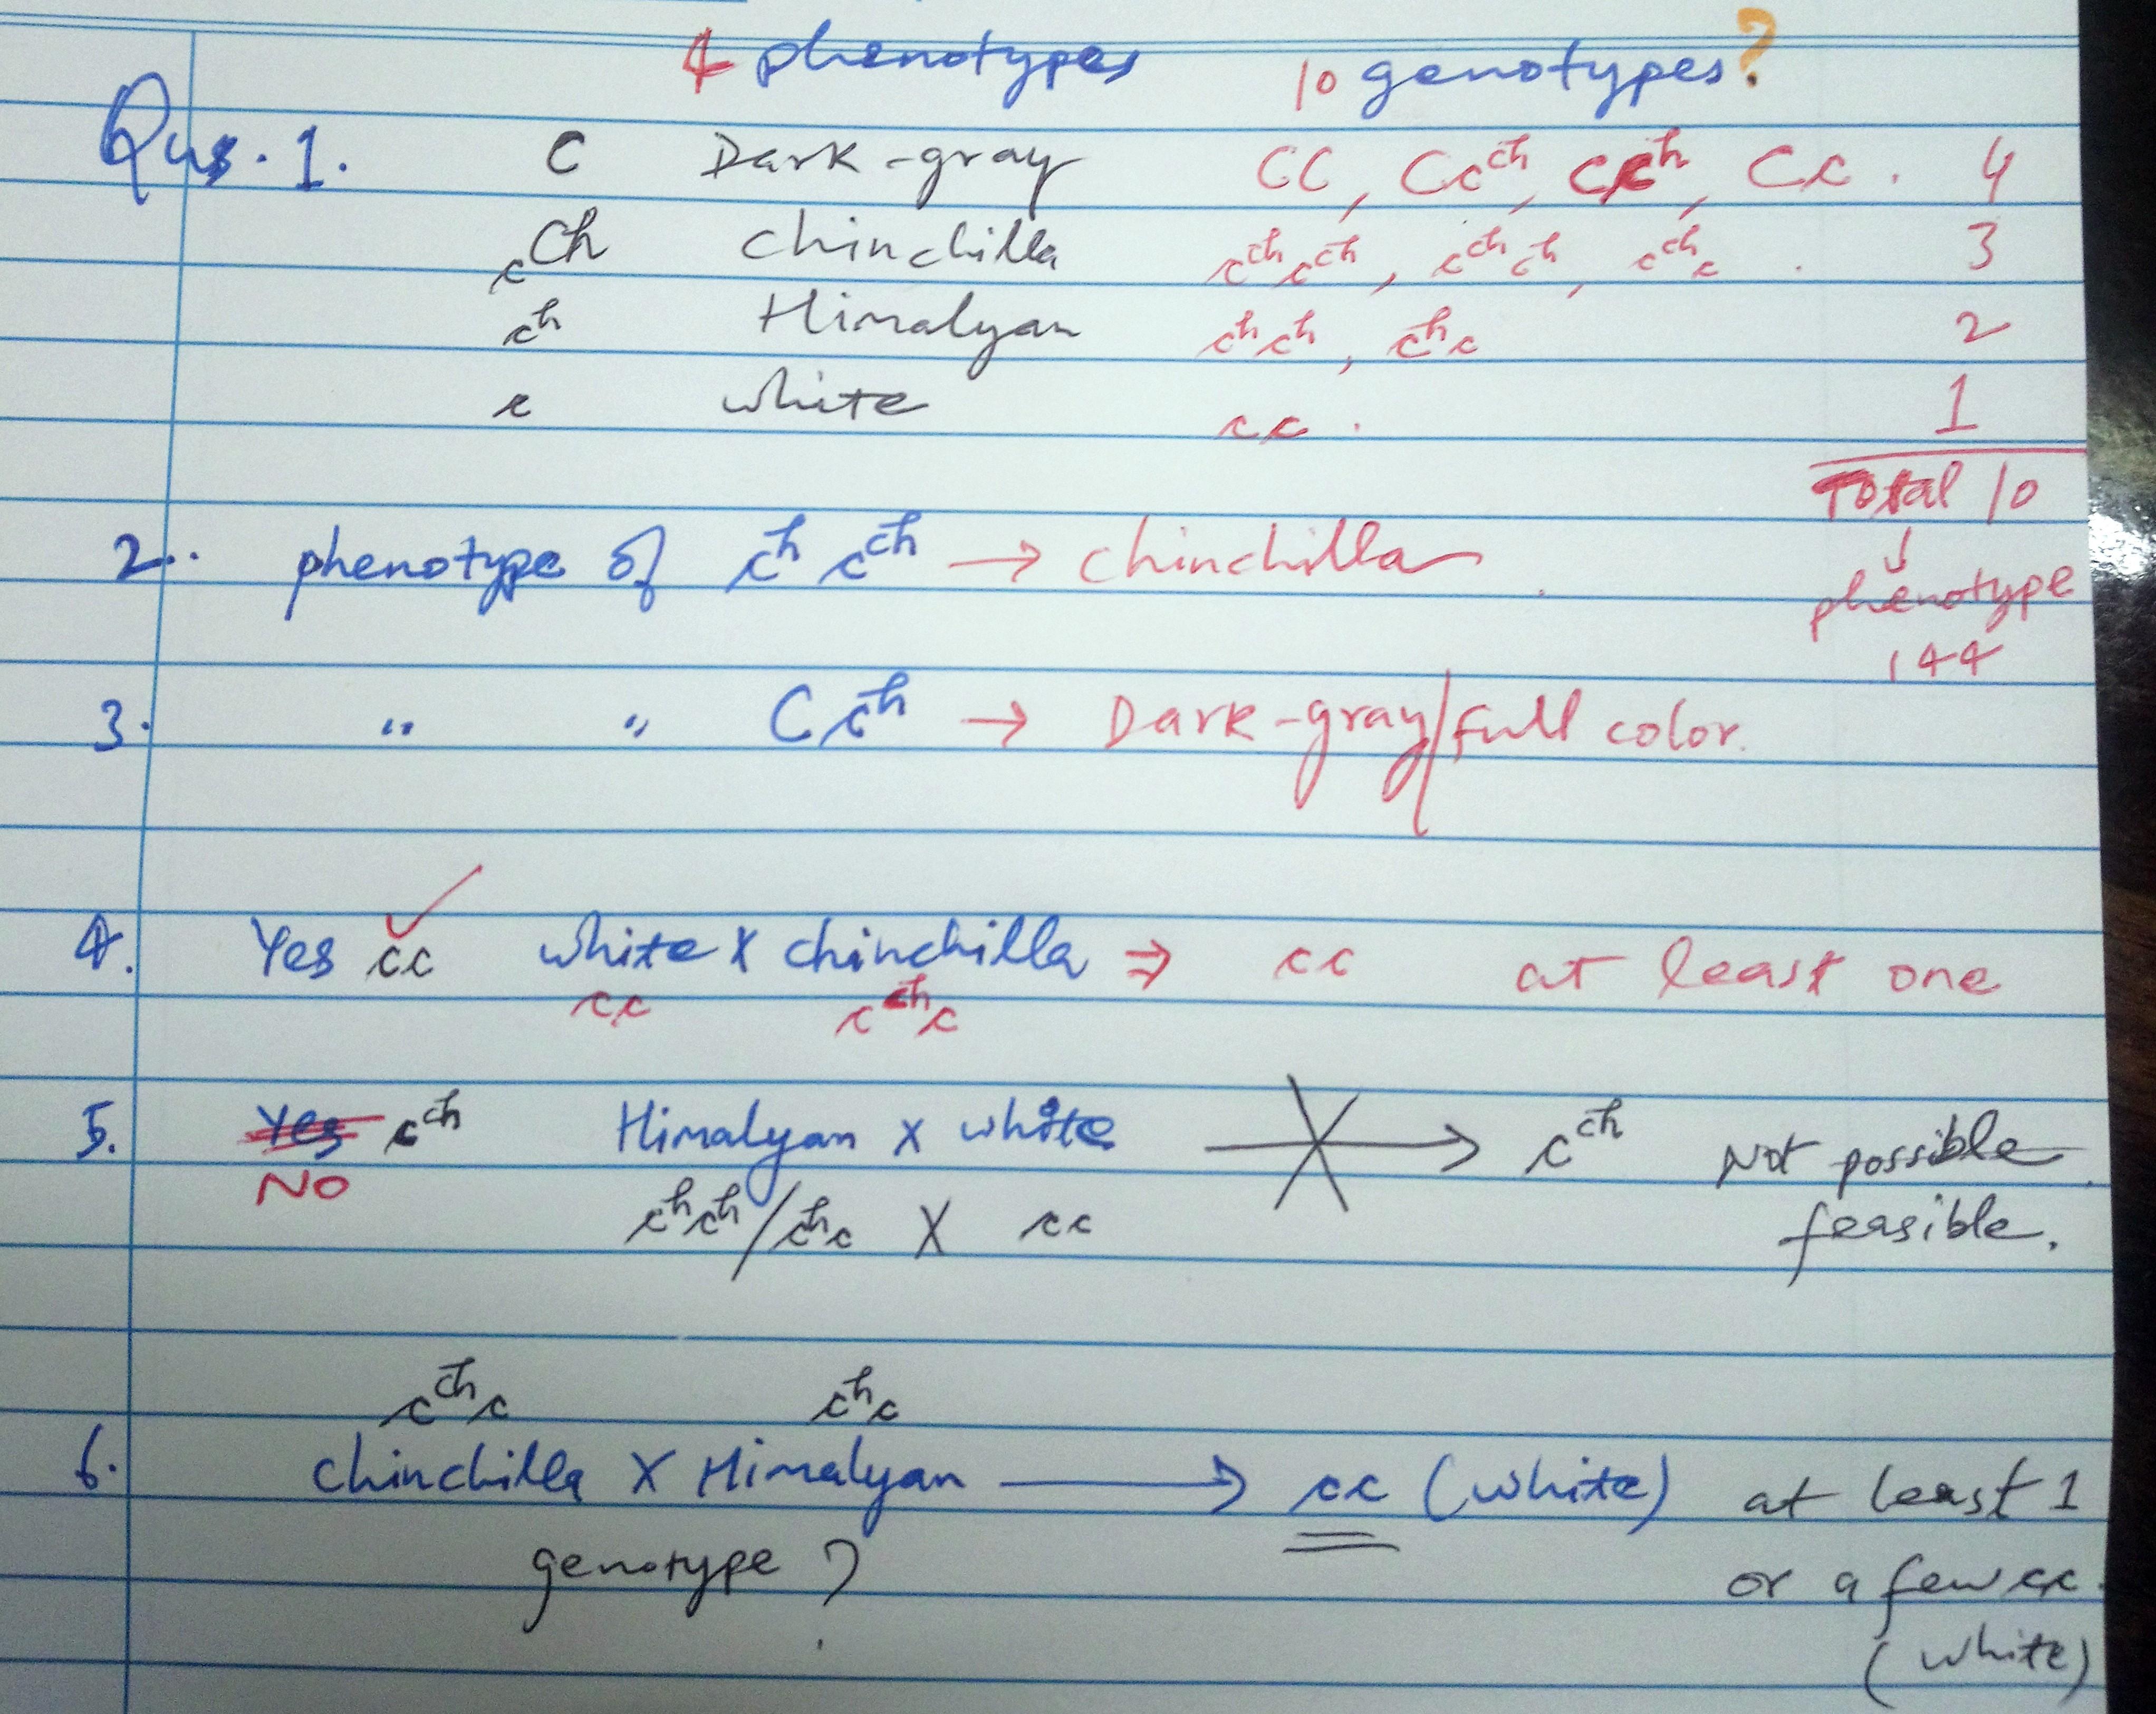 4 phenotypes 10 genotypes?
Qus. 1. C Dark-gray CC, Cc^ch, Cc^h, Cc. 4
c^Ch chinchilla c^ch c^ch, c^ch c^h, c^ch c. 3
c^h Himalyan c^h c^h, c^h c 2
c white cc. 1
Total 10
↓
2.. phenotype of c^h c^ch → chinchilla.
phenotype
144
3. " " C c^h → Dark-gray/full color.
4. Yes cc ✓ white X chinchilla ⇒ cc at least one
cc c^ch c
5. Yes c^ch Himalyan X white → c^ch Not possible
NO c^h c^h / c^h c X cc feasible.
c^ch c c^h c
6. chinchilla X Himalyan → cc (white) at least 1
genotype ? or a few cc.
(white)